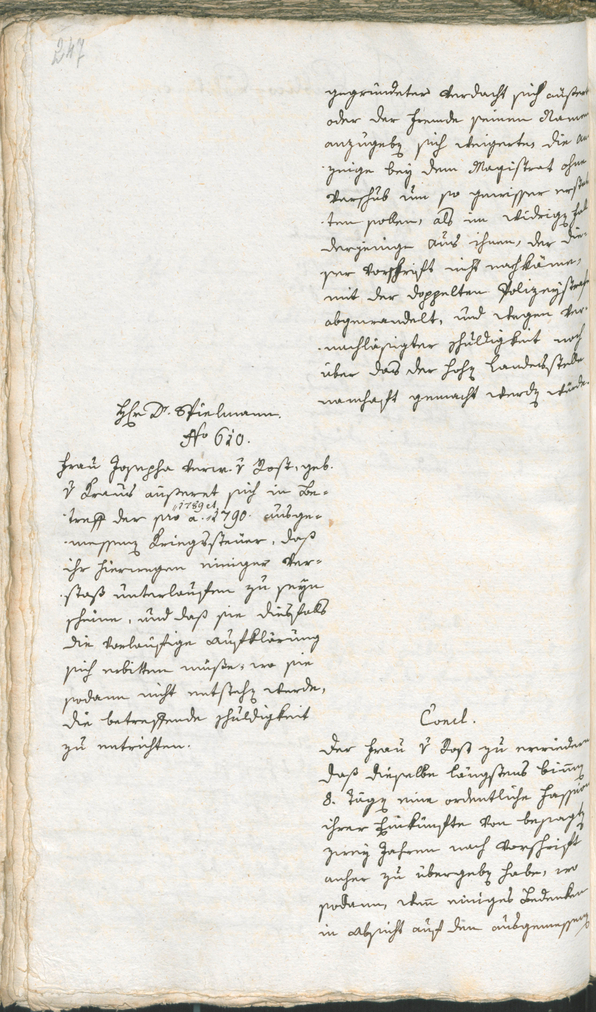 247
gegründeter Verdacht sich äußert
oder der Fremde seinen Namen
anzugeben sich weigerte, die An-
zeige bey dem Magistrat ohne
Verschub um so gewisser erstat-
ten sollen, als im widrigen Fall
derjenige aus ihnen, der die-
ser Vorschrift nicht nachkäme,
mit der doppelten Polizeystrafe
abgewandelt, und wegen ver-
nachläßigter Schuldigkeit noch
über das der hohen Landesstelle
namhaft gemacht werden würde.
Hr. Dr. Spielmann.
No 610.
Frau Josepha verw. v Rost, geb.
v Kraus äußeret sich in Be-
treff der pro a. 1789 et 1790. ausge-
messenen Kriegssteuer, daß
ihr hierwegen einiger Ver-
stoß unterlaufen zu seyn
scheine, und daß sie diesfalls
die vorläufige Aufklärung
sich erbitten müße, wo sie
sodann nicht entstehen werde,
die betreffende Schuldigkeit
zu entrichten.
Concl.
Der Frau v Rost zu erwiedern
daß dieselbe längstens binnen
8. Tägen eine ordentliche Fassion
ihrer Einkünfte von besagten
zwey Jahren nach Vorschrift
anher zu übergeben habe, wo
sodann, wenn einiges Bedenken
in Absicht auf den ausgemessenen